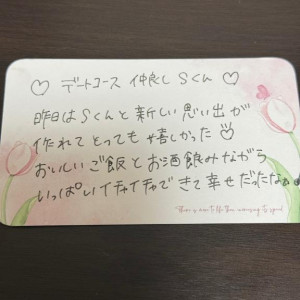 ♡ デートコース 仲良し Sくん ♡
昨日はSくんと新しい思い出が
作れてとっても嬉しかった♡
おいしいご飯とお酒飲みながら
いっぱいイチャイチャできて幸せだったなぁ
There is more to life than increasing its speed.